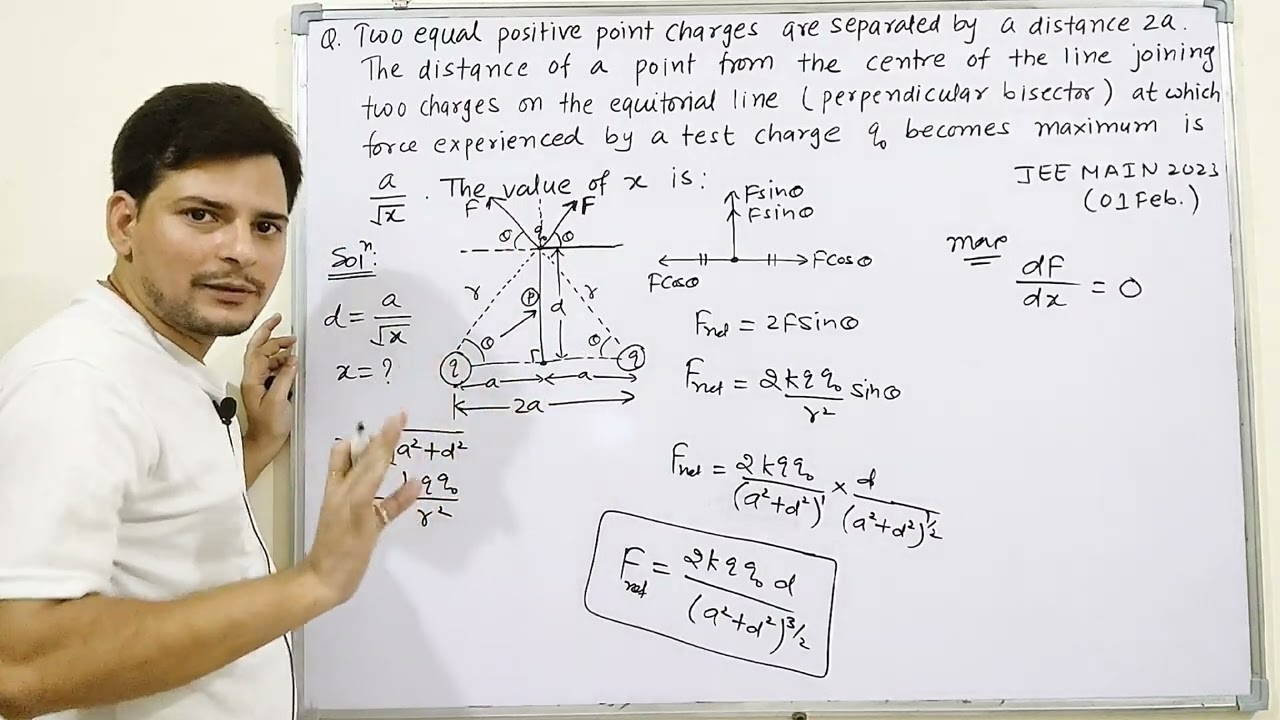 Q. Two equal positive point charges are separated by a distance 2a.
The distance of a point from the centre of the line joining
two charges on the equitorial line (perpendicular bisector) at which
force experienced by a test charge q₀ becomes maximum is
a/√x . The value of x is:
JEE MAIN 2023
(01 Feb.)
Solⁿ:
d = a/√x
x = ?
a²+d²
kqq₀/r²
F F
q₀
θ θ
r r
P d
θ θ
q q
a a
2a
Fsinθ
Fsinθ
Fcosθ Fcosθ
Fnet = 2Fsinθ
Fnet = 2kqq₀/r² sinθ
Fnet = 2kqq₀/(a²+d²)¹ × d/(a²+d²)^1/2
Fnet = 2kqq₀d/(a²+d²)^3/2
dF/dx = 0